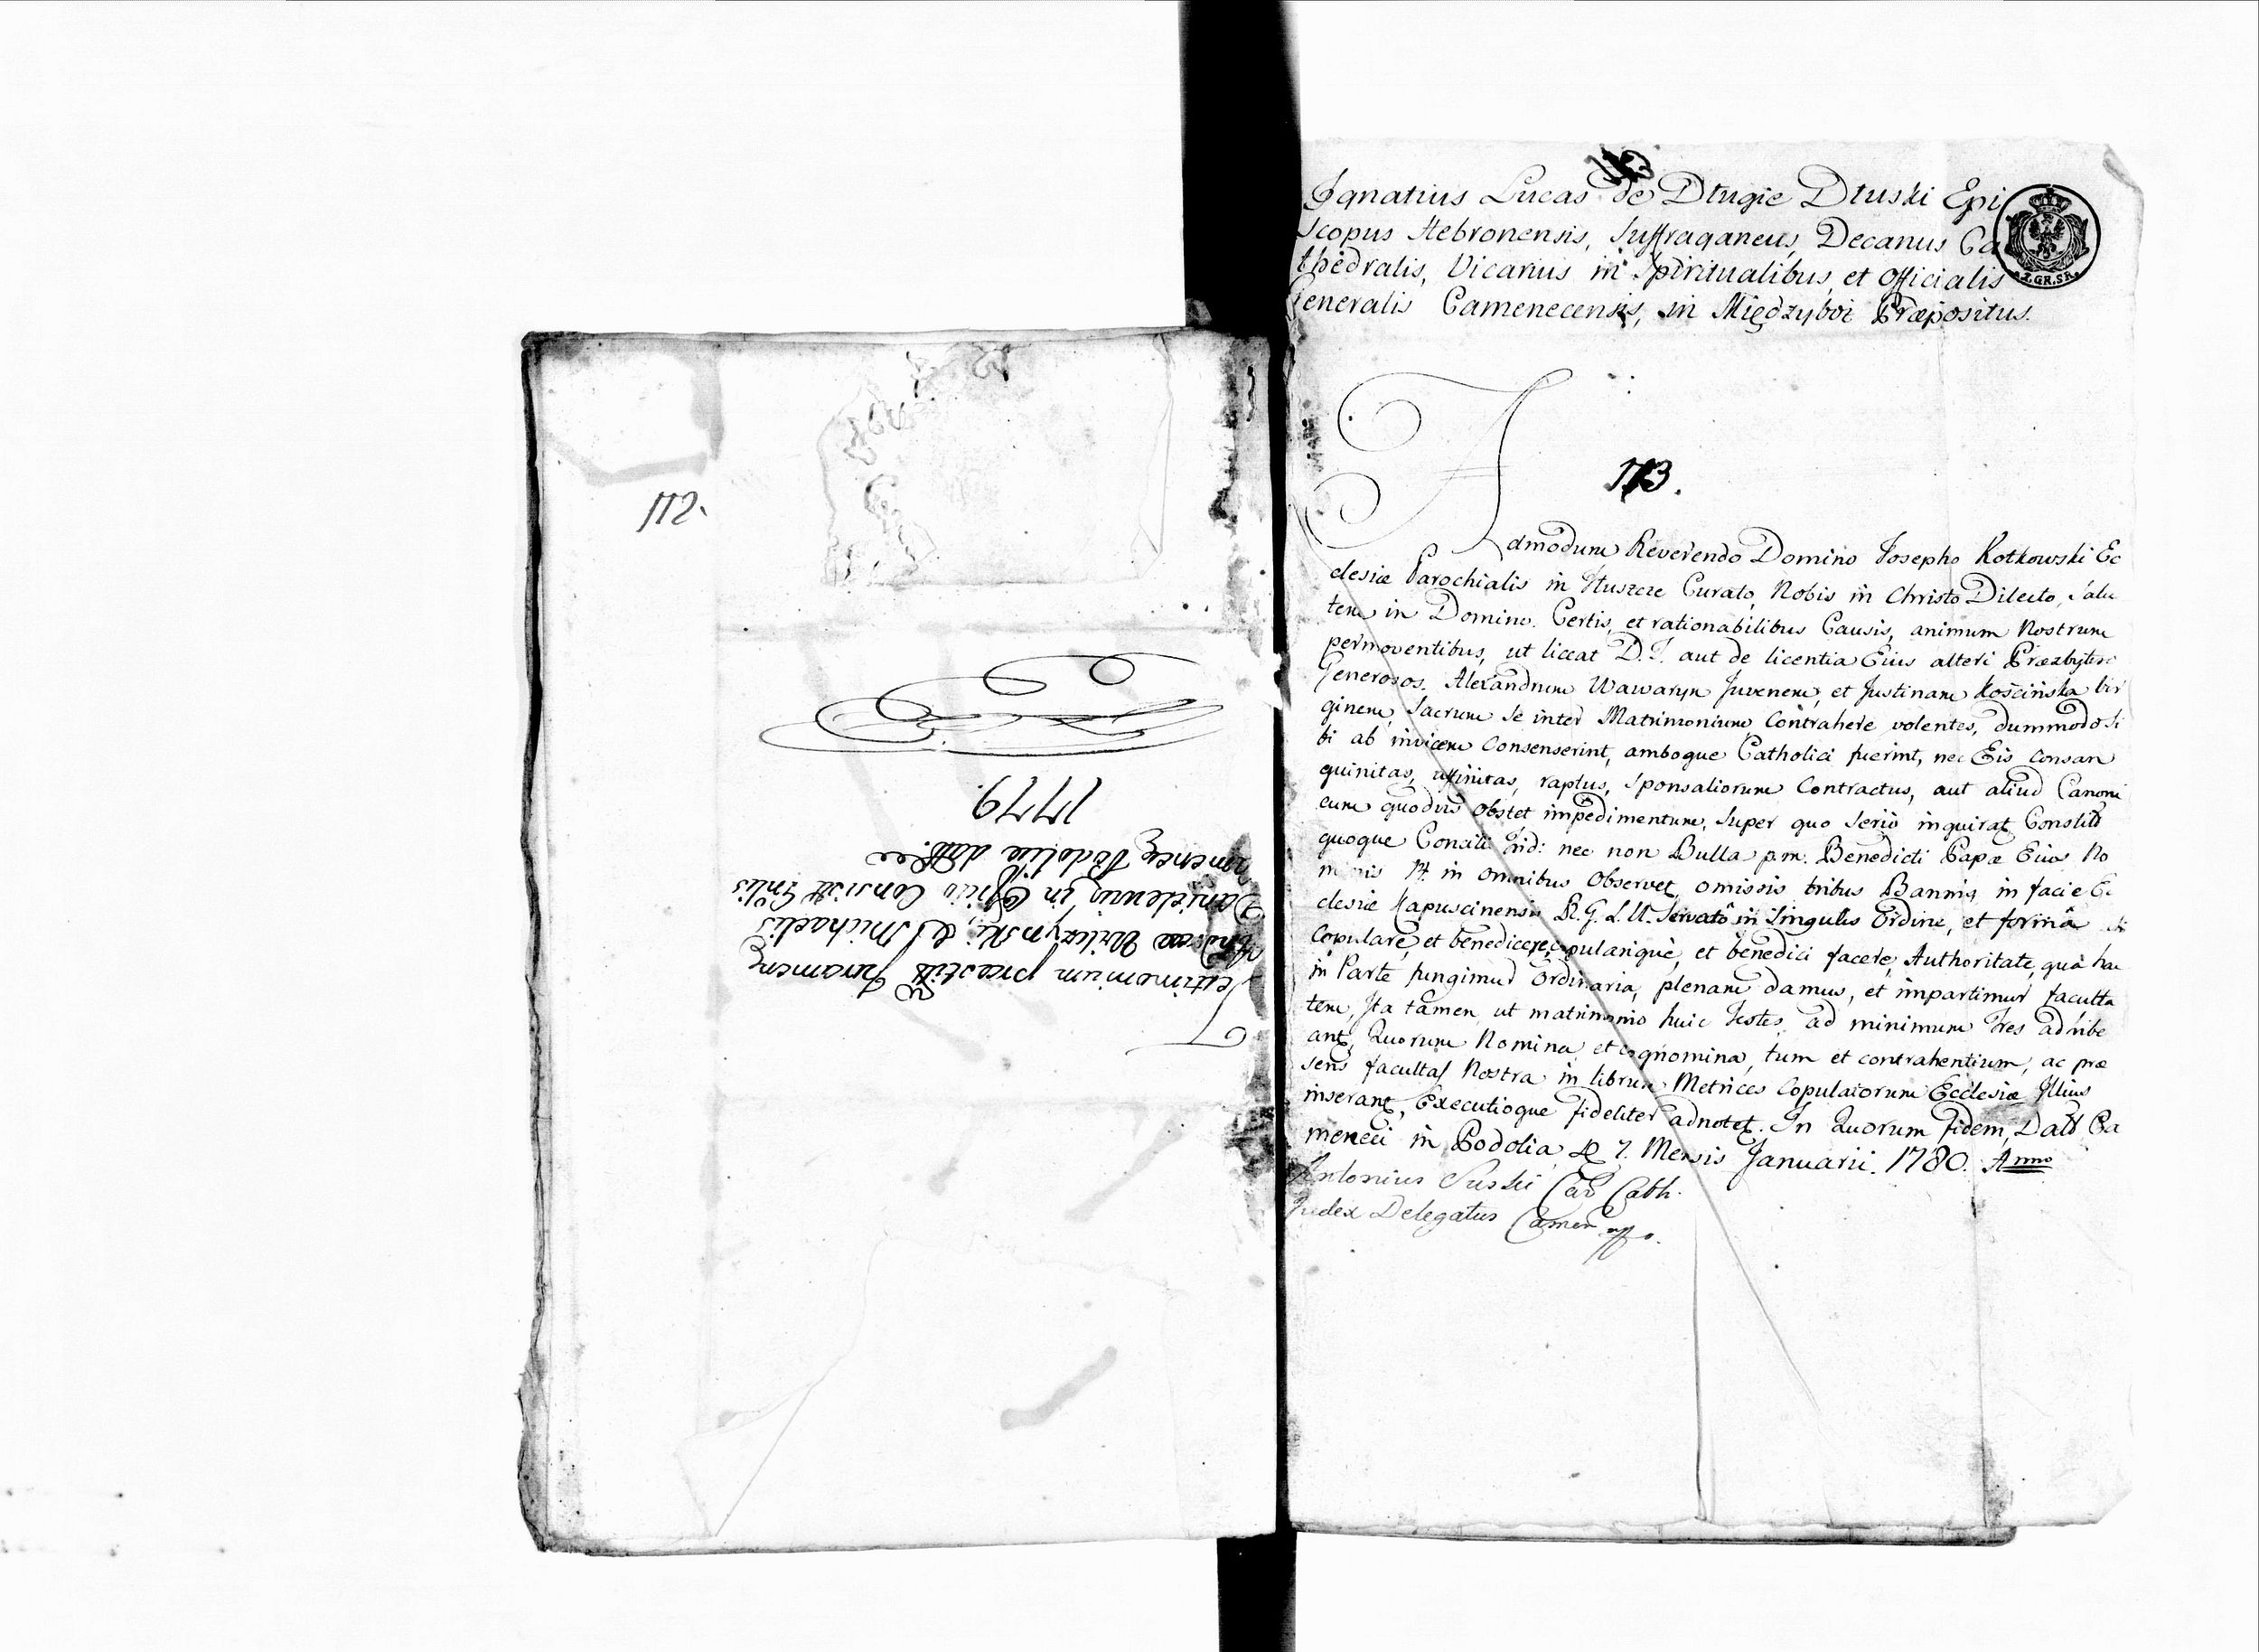 112.
Testimonium præstiti Juramenti
Michaelis
Danielewicz in Officio Consist Gnlis
Podoliæ
1779
Ignatius Lucas de Długie Dłuski Epi
scopus Hebronensis, Suffraganeus, Decanus Ca
thedralis, Vicarius in Spiritualibus, et Officialis
Generalis Camenecensis, in Międzyboż Præpositus.
Z.GR.SR.
173.
Admodum Reverendo Domino Josepho Kotkowski Ec
clesiæ Parochialis in Tłuszcze Curato, Nobis in Christo Dilecto, Salu
tem in Domino. Certis, et rationabilibus Causis, animum Nostrum
permoventibus, ut liceat D. T. aut de licentia Eius alteri Præzbytero
Generosos. Alexandrum Wawaryn Juvenem, et Justinam Kościńska Vir
ginem, Sacrum Se inter Matrimonium Contrahere volentes, dummodo Si
bi ab invicem Consenserint, amboque Catholici fuerint, nec Eis Consan
guinitas, affinitas, raptus, Sponsaliorum Contractus, aut aliud Canoni
cum quodvis obstet impedimentum, Super quo Serio inquirat Constitt
quoque Concilii Trid: nec non Bulla p.m. Benedicti Papæ Eius No
minis 14. in omnibus Observet, omissis tribus Bannis, in facie Ec
clesiæ Kapuscinensis R. G. L. U. Servatô in Singulis Ordine, et formâ
Copulare, et benedicere, copularique, et benedici facere, Authoritate, quâ hac
in Parte fungimur Ordinaria, plenam damus, et impartimur faculta
tem, Ita tamen, ut matrimonio huic Testes ad minimum Tres adhibe
ant, Quorum Nomina, et cognomina, tum et contrahentium, ac præ
sens facultas Nostra in librum Metrices Copulatorum Ecclesiæ Illius
inserant, Executioque fideliter adnotet. In Quorum fidem, Datt Ca
meneci in Podolia, D 7. Mensis Januarii. 1780. Anno
Antonius Suski Can Cath.
Judex Delegatus Camen